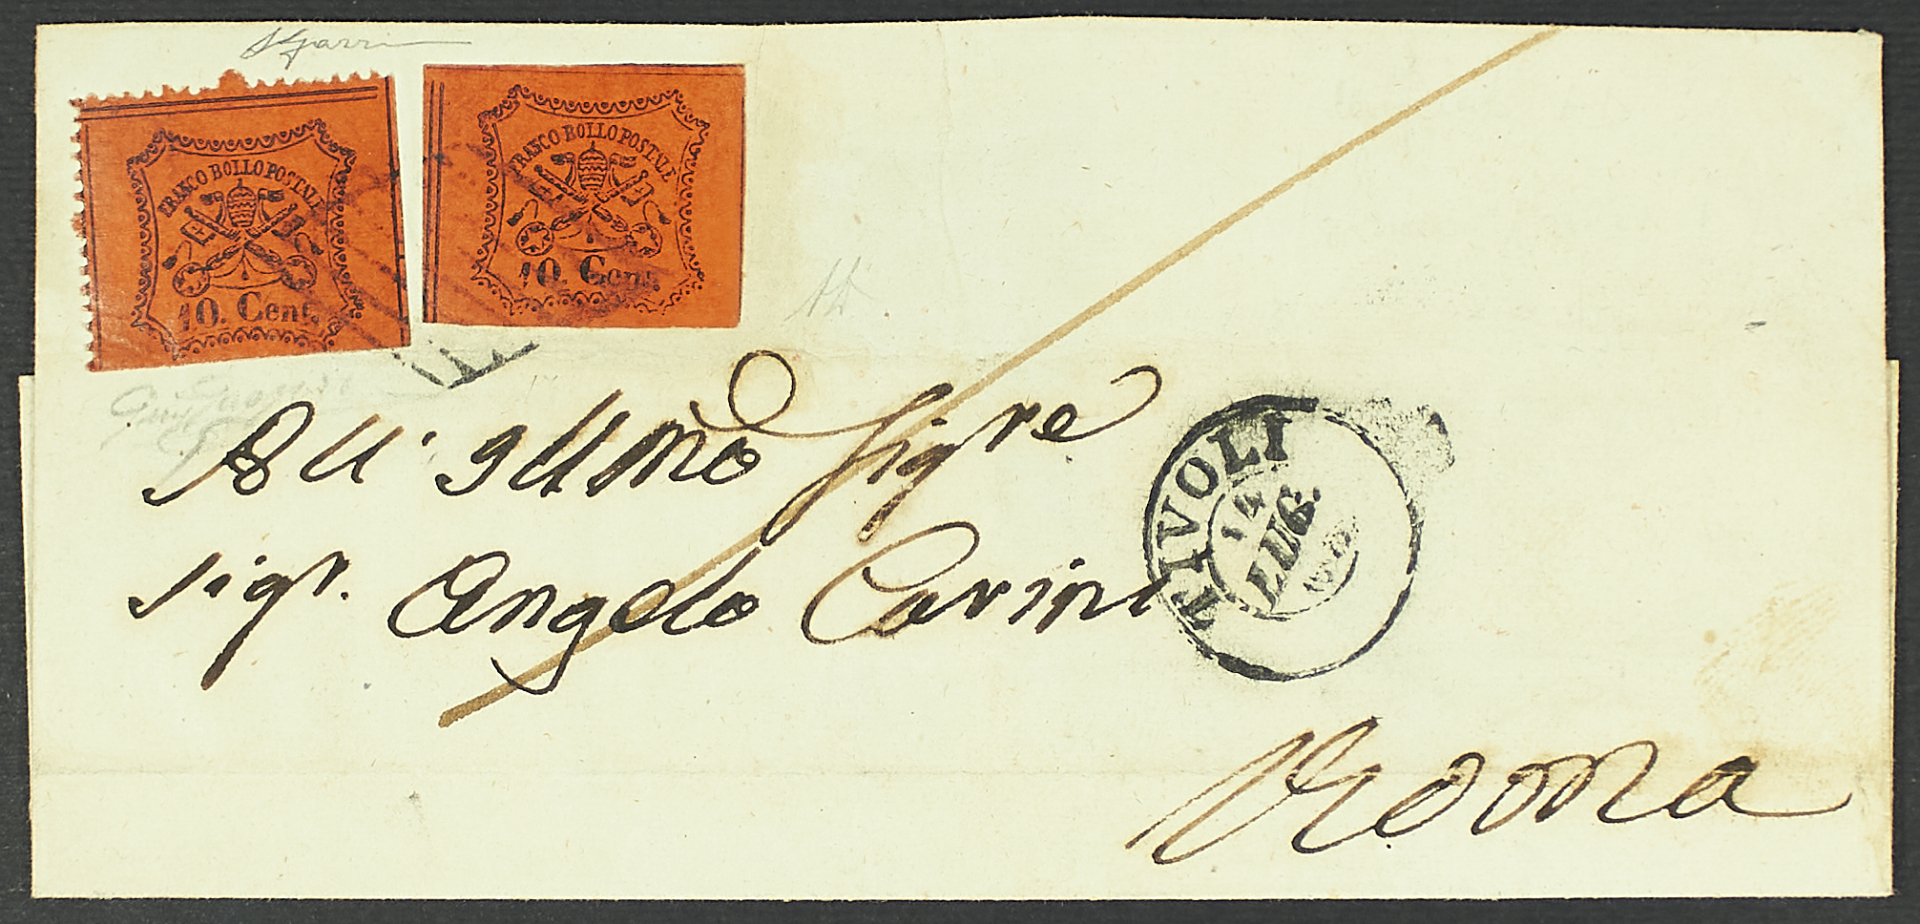 FRANCO BOLLO POSTALE
10. Cent.
FRANCO BOLLO POSTALE
10. Cent.
All' Illmo Sigre
Sigr. Angelo Carini
TIVOLI
14
LUG.
Roma